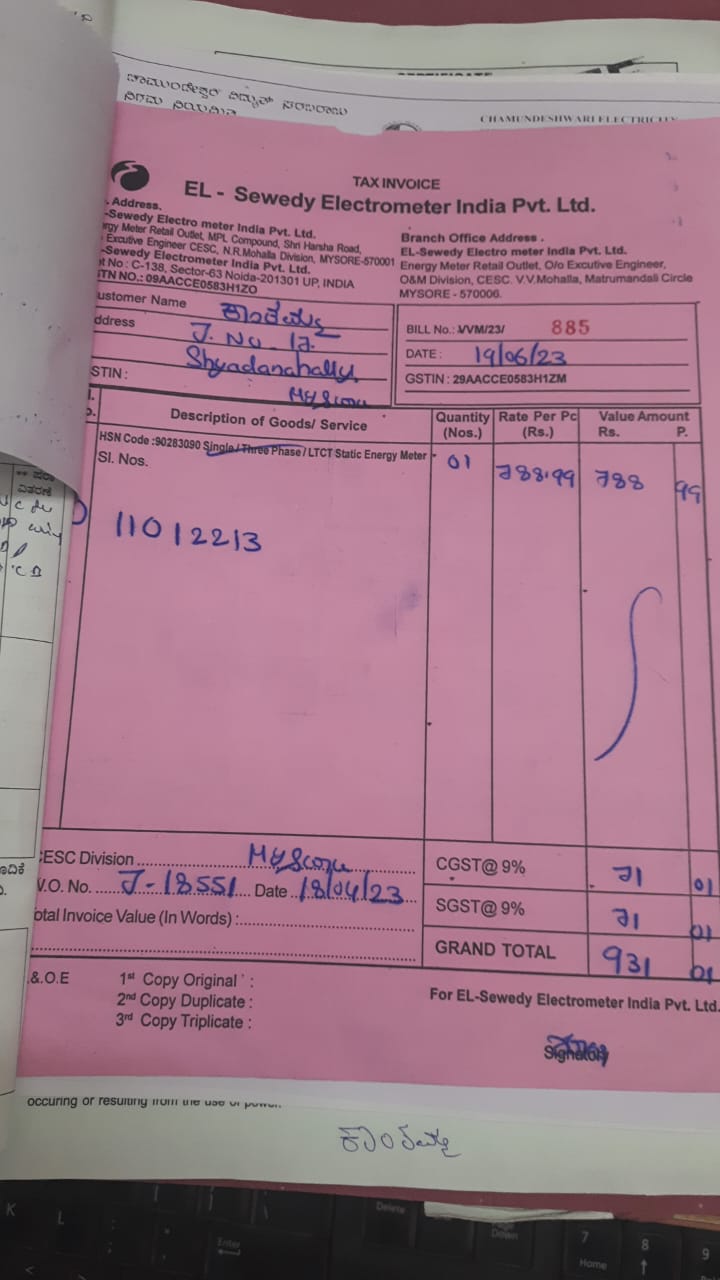 ಚಾಮುಂಡೇಶ್ವರಿ ವಿದ್ಯುತ್ ಸರಬರಾಜು
ನಿಗಮ ನಿಯಮಿತ
CHAMUNDESHWARI ELECTRICITY
TAX INVOICE
EL - Sewedy Electrometer India Pvt. Ltd.
Address.
-Sewedy Electro meter India Pvt. Ltd.
rgy Meter Retail Outlet, MPL Compound, Shri Harsha Road,
Excutive Engineer CESC, N.R.Mohalla Division, MYSORE-570001
-Sewedy Electrometer India Pvt. Ltd.
t No : C-138, Sector-63 Noida-201301 UP, INDIA
TN NO.: 09AACCE0583H1ZO
Branch Office Address .
EL-Sewedy Electro meter India Pvt. Ltd.
Energy Meter Retail Outlet, O/o Excutive Engineer,
O&M Division, CESC. V.V.Mohalla, Matrumandali Circle
MYSORE - 570006.
ustomer Name
ddress J. No. 17.
Shyadanahally.
STIN : Mysore
BILL No.: VVM/23/ 885
DATE : 19/06/23
GSTIN : 29AACCE0583H1ZM
Description of Goods/ Service Quantity (Nos.) Rate Per Pc (Rs.) Value Amount Rs. P.
HSN Code :90283090 Single / Three Phase / LTCT Static Energy Meter 01 788.99 788 99
Sl. Nos.
11012213
CESC Division Mysore CGST@ 9% 71 01
V.O. No. J-18551 Date 18/04/23 SGST@ 9% 71 01
otal Invoice Value (In Words) :
GRAND TOTAL 931 01
.&.O.E
1st Copy Original :
2nd Copy Duplicate :
3rd Copy Triplicate :
For EL-Sewedy Electrometer India Pvt. Ltd.
Signatory
occuring or resulting from the use of power.
K
L
Enter
Delete
Page Down
7
Home
8
9